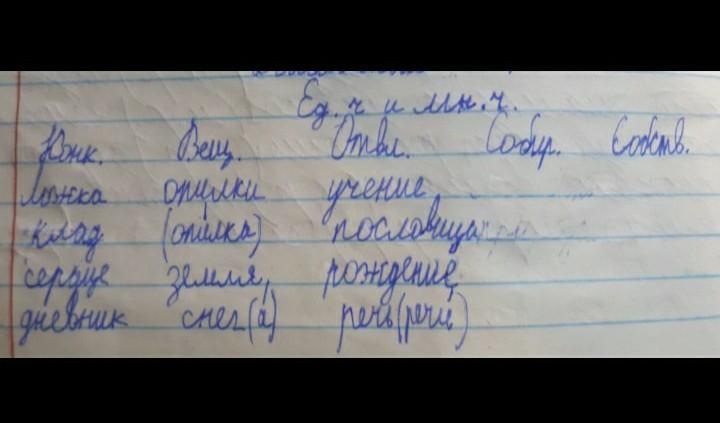 Ед. ч и мн. ч.
Конк. Вещ. Отвл. Собир. Собств.
ложка опилки учение
клад (опилка) пословица
сердце земля, рождение
дневник снег(а) речь(речи)